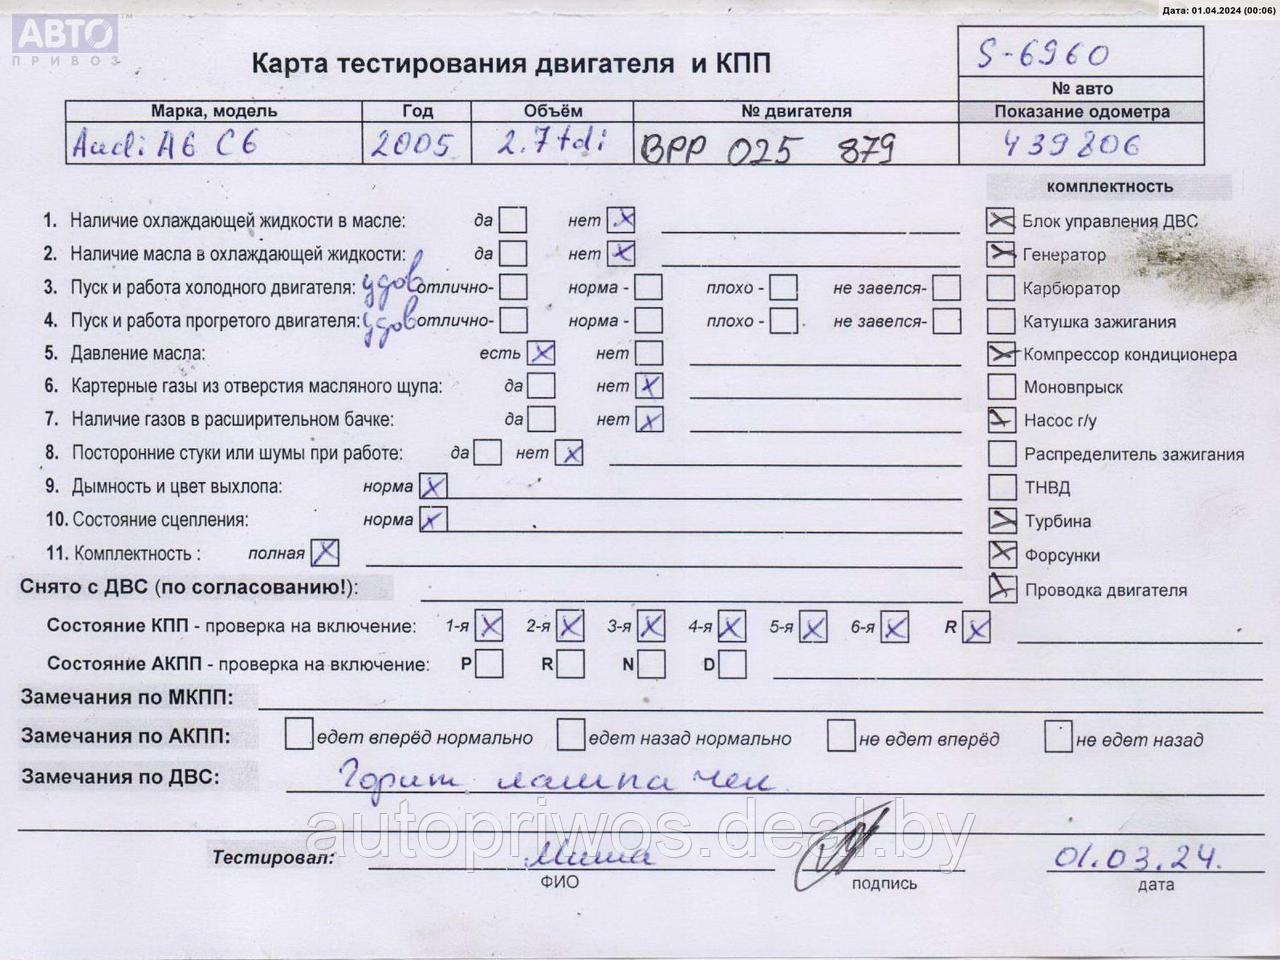 Дата: 01.04.2024 (00:06)
АВТО
ПРИВОЗ
Карта тестирования двигателя и КПП
S-6960
№ авто
Марка, модель Год Объём № двигателя Показание одометра
Audi A6 C6 2005 2.7tdi BPP 025 879 439806
комплектность
1. Наличие охлаждающей жидкости в масле: да нет x Блок управления ДВС
2. Наличие масла в охлаждающей жидкости: да нет x Генератор
3. Пуск и работа холодного двигателя: удов отлично- норма - плохо - не завелся- Карбюратор
4. Пуск и работа прогретого двигателя: удов отлично- норма - плохо - не завелся- Катушка зажигания
5. Давление масла: есть x нет Компрессор кондиционера
6. Картерные газы из отверстия масляного щупа: да нет x Моновпрыск
7. Наличие газов в расширительном бачке: да нет x Насос г/у
8. Посторонние стуки или шумы при работе: да нет x Распределитель зажигания
9. Дымность и цвет выхлопа: норма x ТНВД
10. Состояние сцепления: норма x Турбина
11. Комплектность : полная x Форсунки
Снято с ДВС (по согласованию!): Проводка двигателя
Состояние КПП - проверка на включение: 1-я x 2-я x 3-я x 4-я x 5-я x 6-я x R x
Состояние АКПП - проверка на включение: P R N D
Замечания по МКПП:
Замечания по АКПП: едет вперёд нормально едет назад нормально не едет вперёд не едет назад
Замечания по ДВС: Горит лампа чек
autopriwos.deal.by
Тестировал: Миша 01.03.24.
ФИО подпись дата